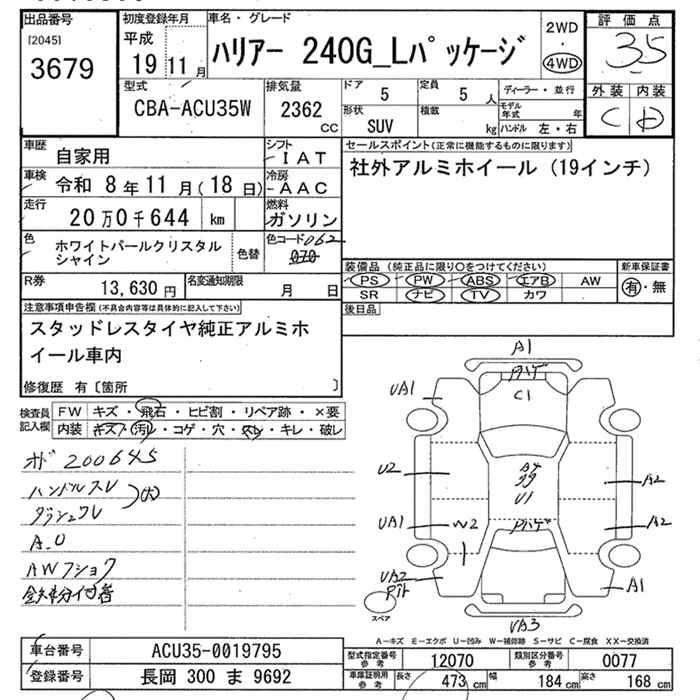 出品番号
[2045]
3679
初度登録年月
平成
19 11 月
車名・グレード
ハリアー 240G_Lパッケージ
2WD
・
4WD
評価点
3.5
外装 内装
C D
型式
CBA-ACU35W
排気量
2362
cc
ドア 5
定員 5 人
ディーラー・並行
形状
SUV
積載
kg
モデル年式 年
ハンドル 左・右
車歴
自家用
シフト
IAT
車検 令和 8年 11月(18日)
冷房
AAC
走行
20万0千644 km
燃料
ガソリン
色
ホワイトパールクリスタル
シャイン
色替
色コード 062
070
R券
13,630 円
名変通知期限
月 日
セールスポイント(正常に機能するものに限ります)
社外アルミホイール(19インチ)
装備品(純正品に限り○をつけてください)
PS PW ABS エアB AW
SR ナビ TV カワ
新車保証書
有・無
後日品
注意事項申告欄(不具合内容等は具体的に記入して下さい)
スタッドレスタイヤ純正アルミホ
イール車内
修復歴 有〔箇所 〕
検査員
記入欄
FW キズ・飛石・ヒビ割・リペア跡・×要
内装 キズ・汚レ・コゲ・穴・スレ・キレ・破レ
200645
ハンドルスレ
A.U
鉄粉付着
A1
ハゲ
C1
UA1
U2
UA1
W2
UA2
A4
U1
ハゲ
A2
A2
A1
UA3
スペア
A-キズ E-エクボ U-凹み W-補修跡 S-サビ C-腐食 XX-交換済
車台番号 ACU35-0019795
登録番号 長岡 300 ま 9692
型式指定番号
参考
12070
類別区分番号
参考
0077
車庫証明用
参考
長さ 473 cm
幅 184 cm
高さ 168 cm